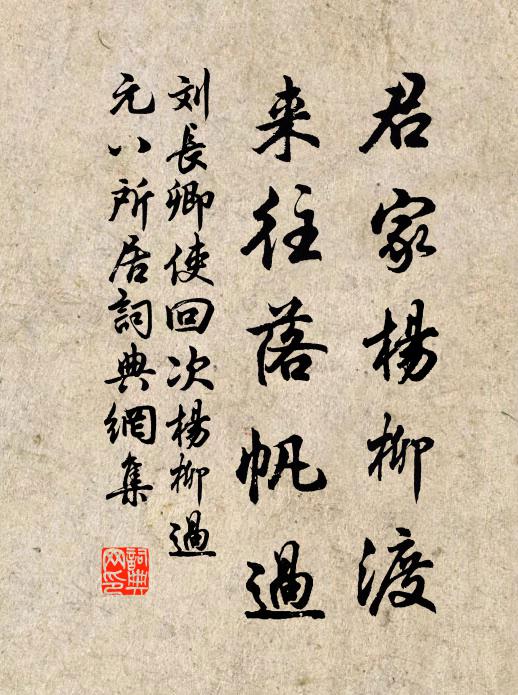 君家楊柳渡
来往落帆過
刘長卿使回次楊柳過
元八所居詞典網集
詞典网印